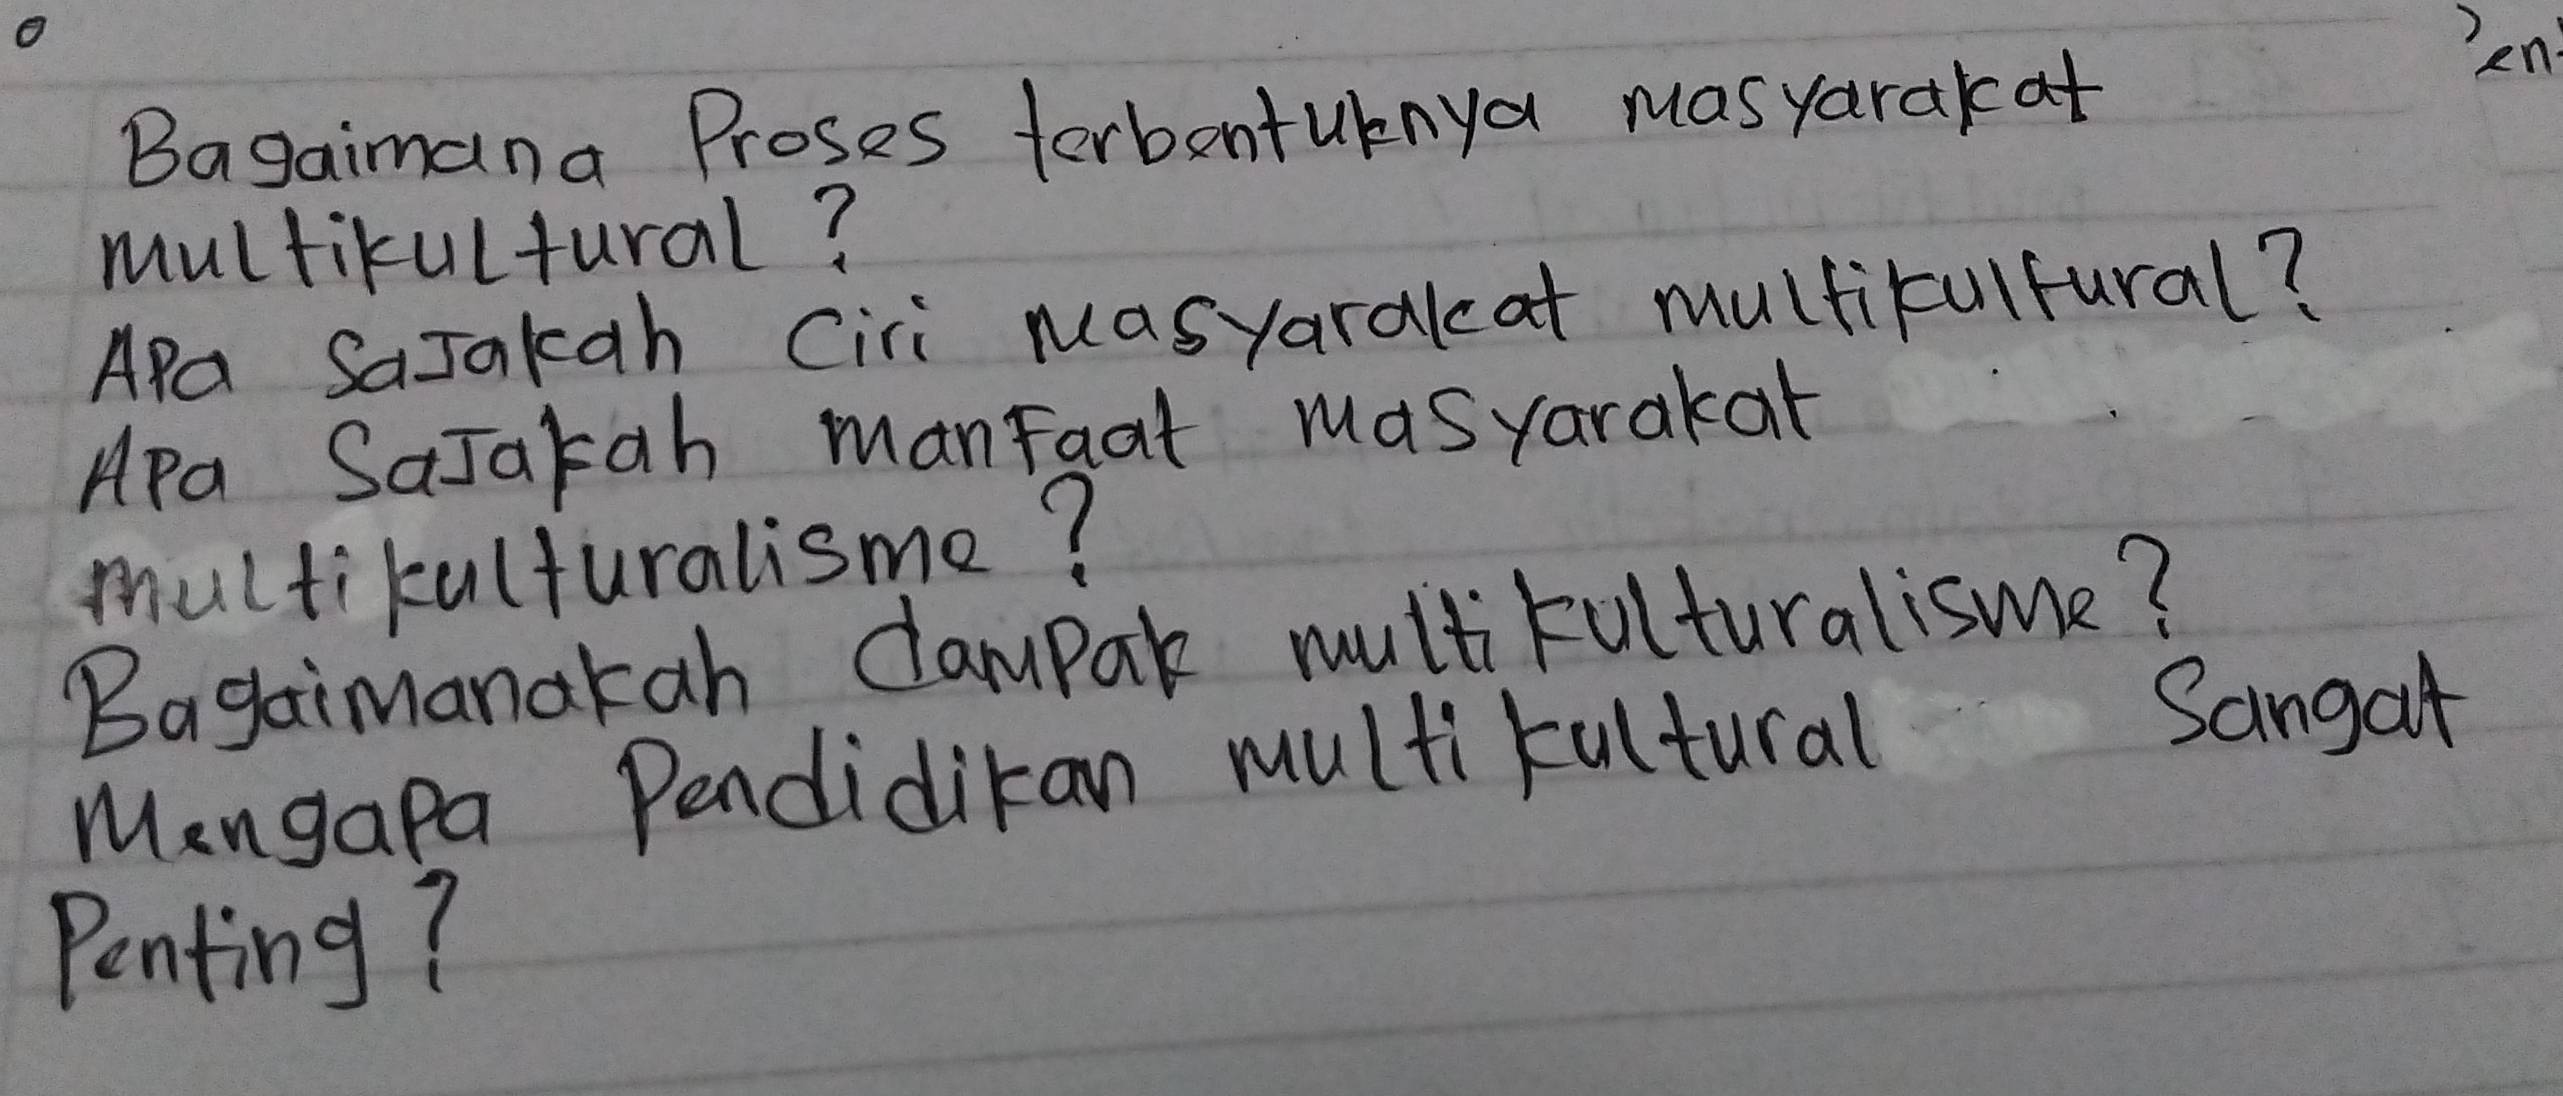 Bagaimana Proses terbentuknya masyarakat
multikultural?
Apa sajakah ciri masyarakat multikultural?
Apa sajakah manfaat masyarakat
multikulturalisme?
Bagaimanakah dampak multikulturalisme?
Mengapa Pendidikan multikultural sangat
Penting?